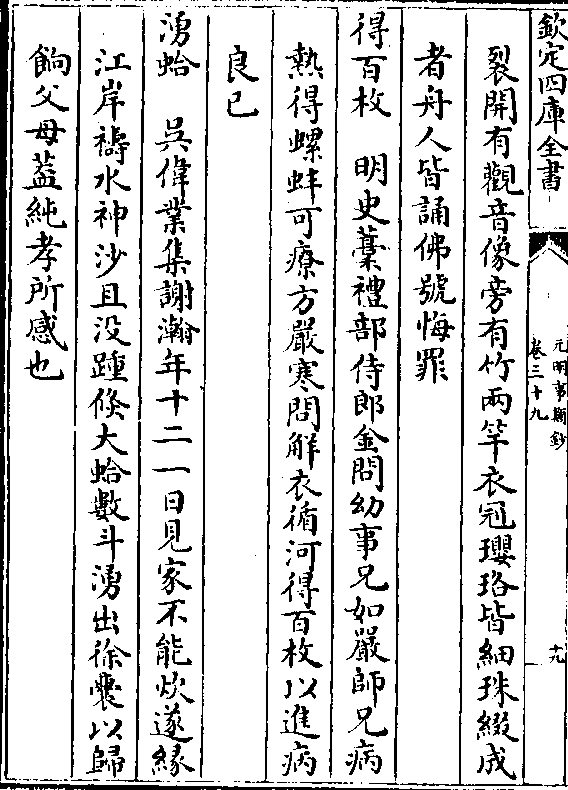 欽定四庫全書
元明事類鈔
卷三十九
十九
裂開有觀音像旁有竹兩竿衣冠瓔珞皆細珠綴成
者舟人皆誦佛號悔罪
得百枚　明史藁禮部侍郎金問幼事兄如嚴師兄病
熱得螺蚌可療方嚴寒問解衣循河得百枚以進病
良已
湧蛤　吳偉業集謝瀚年十二一日見家不能炊遂緣
江岸禱水神沙且没踵倏大蛤數斗湧出徐褁以歸
餉父母葢純孝所感也